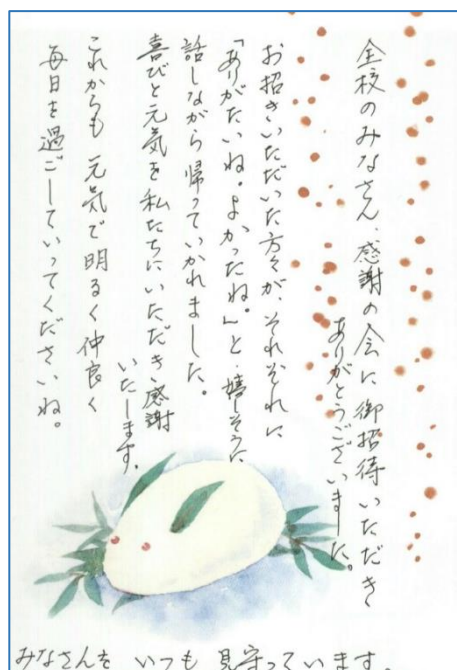 全校のみなさん、感謝の会に御招待いただき
ありがとうございました。
お招きいただいた方々が、それぞれに
「ありがたいね。よかったね。」と、嬉しそうに
話しながら帰っていかれました。
喜びと元気を私たちにいただき、感謝
いたします。
これからも元気で明るく仲良く
毎日を過ごしていってくださいね。
みなさんを いつも 見守っています。